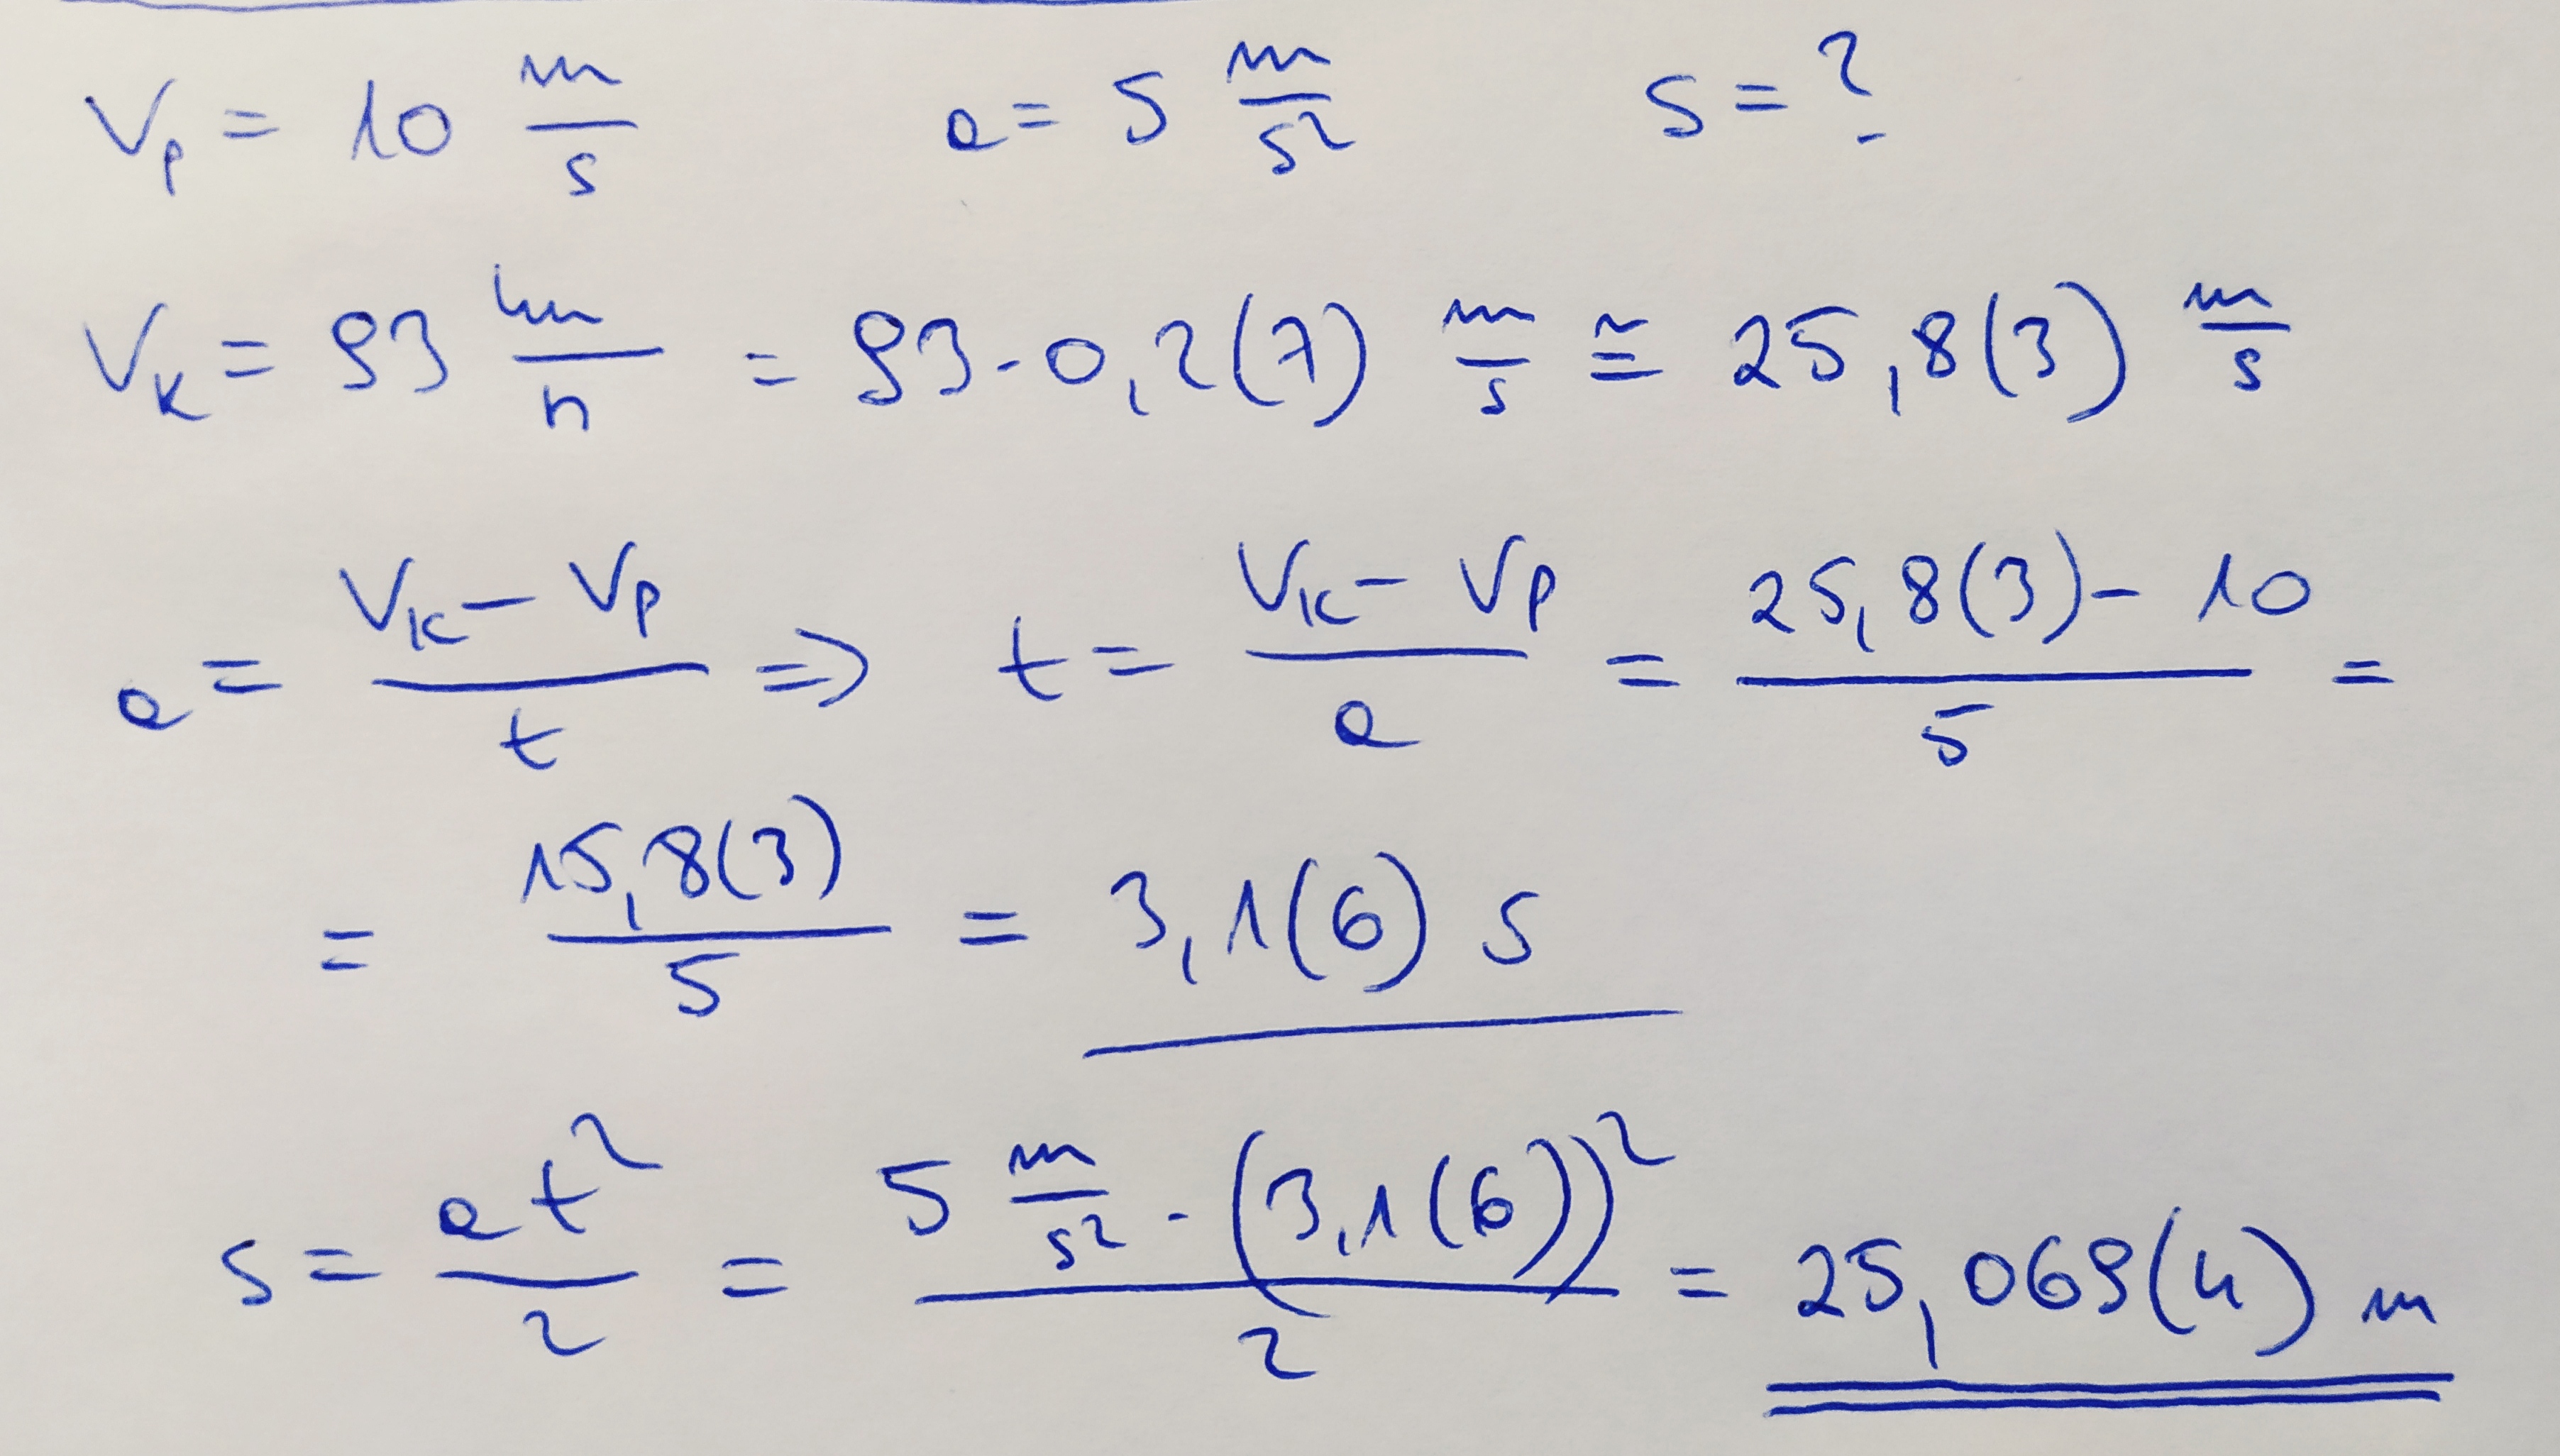 Vp = 10 m/s a = 5 m/s² s = ?
Vk = 93 km/h = 93 · 0,2(7) m/s ≅ 25,8(3) m/s
a = (Vk - Vp)/t => t = (Vk - Vp)/a = (25,8(3) - 10)/5 =
= 15,8(3)/5 = 3,1(6) s
s = at²/2 = (5 m/s² · (3,1(6))²)/2 = 25,069(4) m